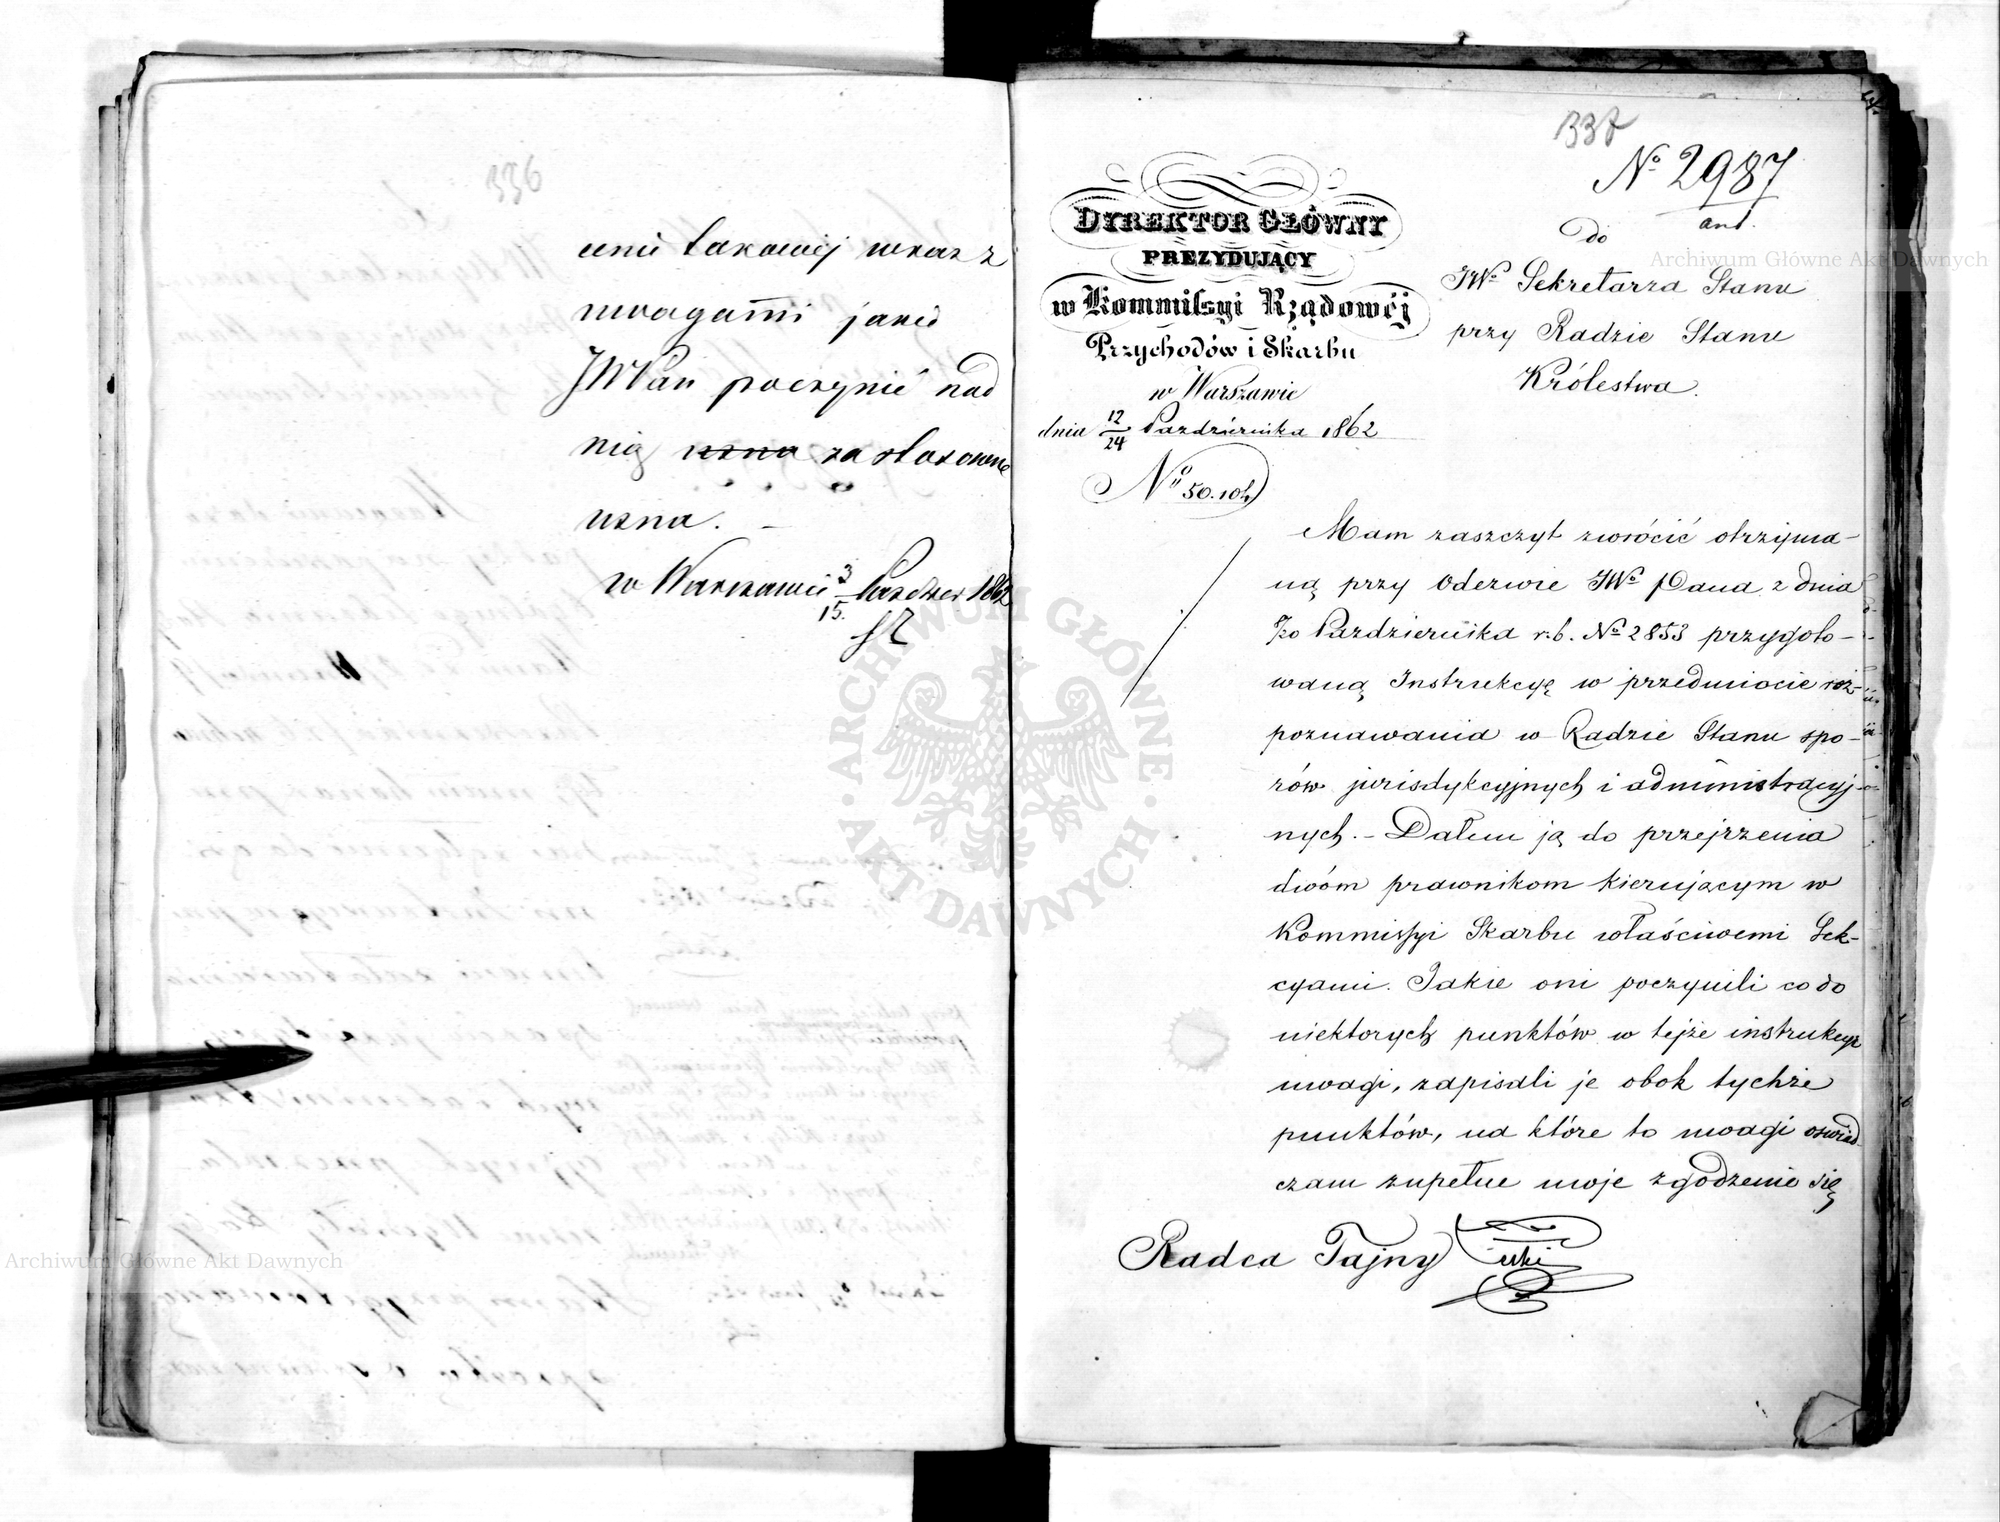 336
ceniu takowej wraz z
uwagami jakie
JWPan poczynić nad
nią uzna za stosowne
uzna. —
w Warszawie 3/15 Paździer 1862
337
No 2987
DYREKTOR GŁÓWNY
PREZYDUJĄCY
w Kommissyi Rządowéj
Przychodów i Skarbu
w Warszawie
dnia 12/24 Października 1862
No 50.104
do
JWo Sekretarza Stanu
przy Radzie Stanu
Królestwa.
Mam zaszczyt zwrócić otrzyma-
ną przy Odezwie JWo Pana z dnia
Października r.b. No 2853 przygoto-
waną Instrukcyę w przedmiocie roz-
poznawania w Radzie Stanu spo-
rów jurisdykcyjnych i administracyj-
nych. — Dałem ją do przejrzenia
dwóm prawnikom kierującym w
Kommissyi Skarbu właściwemi Sek-
cyami. Jakie oni poczynili co do
niektorych punktów w tejże instrukcyi
uwagi, zapisali je obok tychże
punktów, na które to uwagi oświad-
czam zupełne moje zgodzenie się
Radca Tajny
Archiwum Główne Akt Dawnych
Archiwum Główne Akt Dawnych
ARCHIWUM GŁÓWNE AKT DAWNYCH